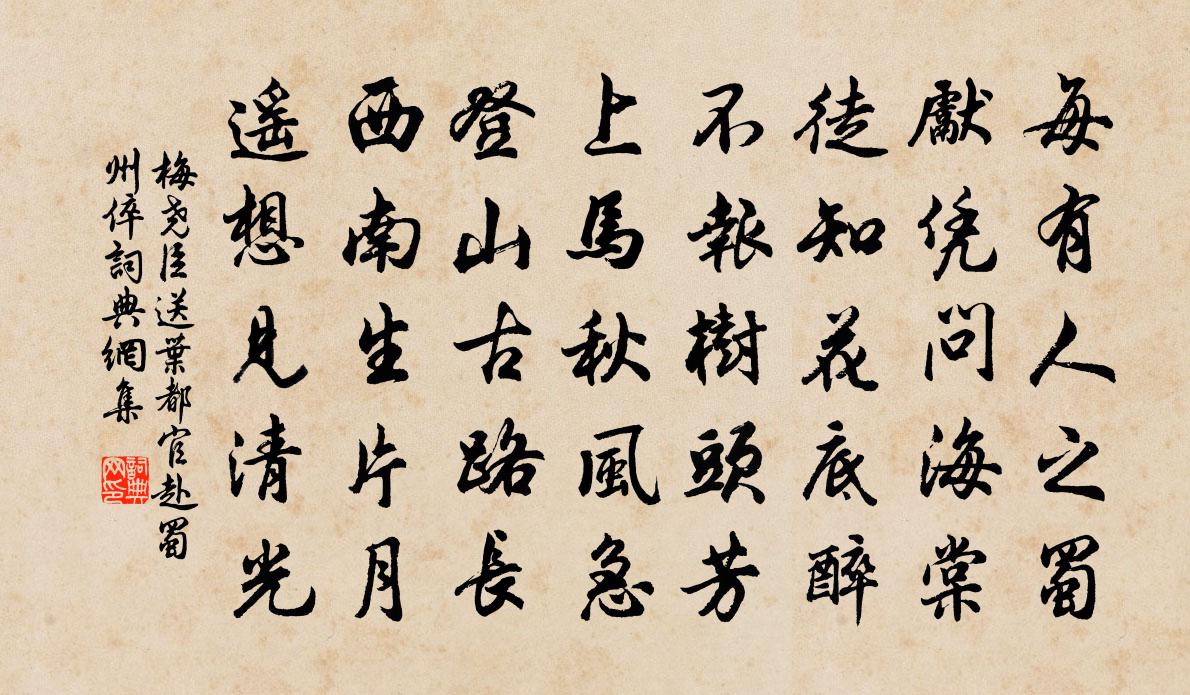 每有人之蜀
獻凭問海棠
徒知花底醉
不報樹頭芳
上馬秋風急
登山古路長
西南生片月
遥想見清光
梅尧臣送葉都官赴蜀
州倅詞典網集
詞典
网印